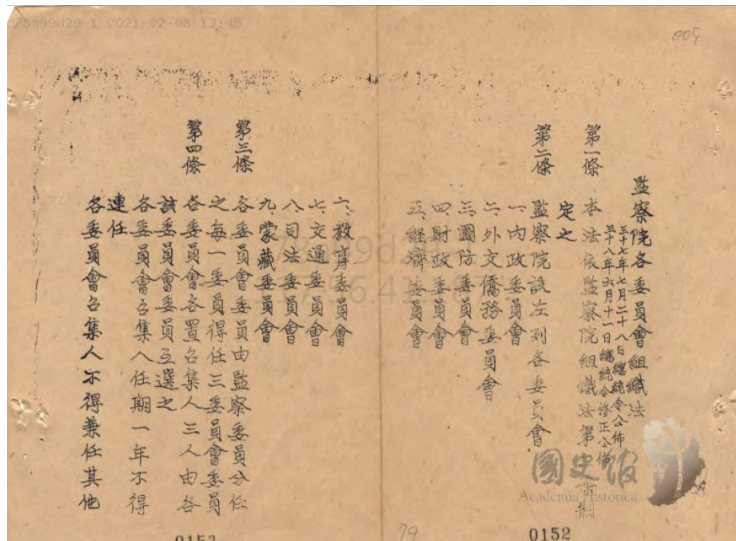 監察院各委員會組織法
三十七年七月二十八日總統令公佈
三十八年六月十一日總統令修正公佈
第一條 本法依監察院組織法第
定之
第二條 監察院設左列各委員會
一、內政委員會
二、外交僑務委員會
三、國防委員會
四、財政委員會
五、經濟委員會
六、教育委員會
七、交通委員會
八、司法委員會
九、蒙藏委員會
第三條 各委員會委員由監察委員分任
之每一委員得任三委員會委員
第四條 各委員會各置召集人三人由各
該委員會委員互選之
各委員會召集人任期一年不得
連任
各委員會召集人不得兼任其他
0152
79
國史館
Academia Historica
2021-02-08 13:48